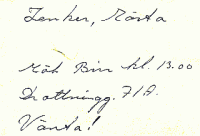 Zenker, Mösta
Möt Birr kl. 13.00
Drottningg. 71A.
Vänta!